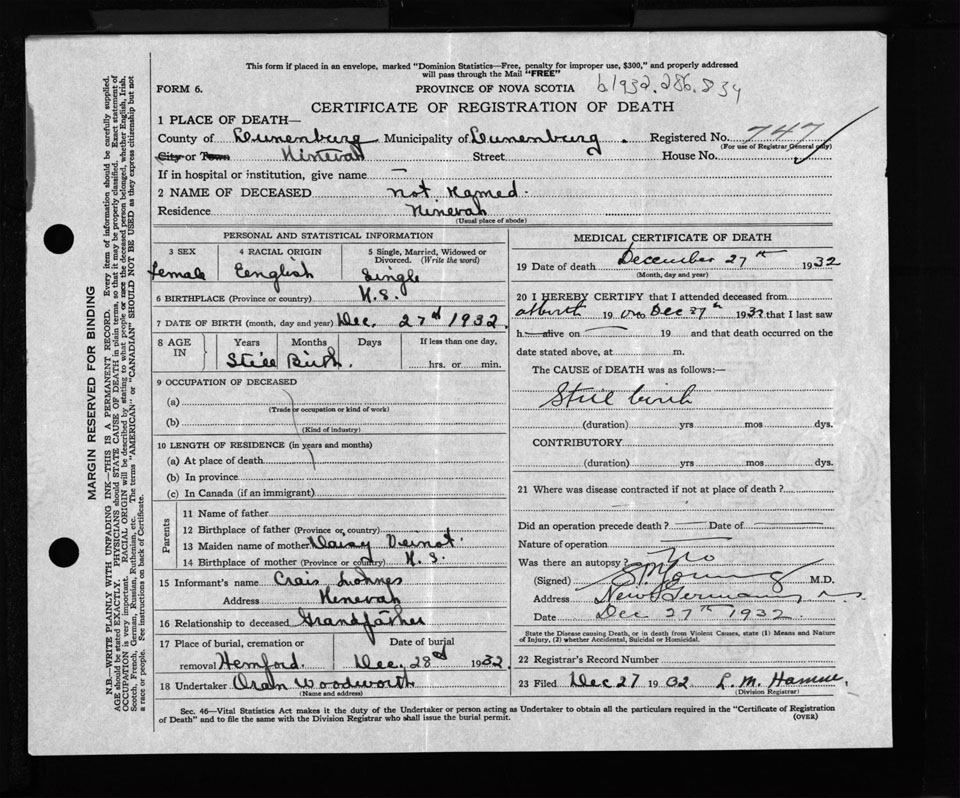 This form if placed in an envelope, marked "Dominion Statistics—Free, penalty for improper use, $300," and properly addressed
will pass through the Mail "FREE"
FORM 6. PROVINCE OF NOVA SCOTIA b1932.286.834
CERTIFICATE OF REGISTRATION OF DEATH
1 PLACE OF DEATH—
County of Lunenburg Municipality of Lunenburg. Registered No. 747
(For use of Registrar General only)
City or Town Street House No.
If in hospital or institution, give name —
2 NAME OF DECEASED not Named.
Residence Ninevah
(Usual place of abode)
PERSONAL AND STATISTICAL INFORMATION
3 SEX 4 RACIAL ORIGIN 5 Single, Married, Widowed or Divorced. (Write the word)
Female English Single
6 BIRTHPLACE (Province or country) N.S.
7 DATE OF BIRTH (month, day and year) Dec. 27th 1932.
8 AGE IN Years Months Days If less than one day,
Still Birth. hrs. or min.
9 OCCUPATION OF DECEASED
(a)
(Trade or occupation or kind of work)
(b)
(Kind of industry)
10 LENGTH OF RESIDENCE (in years and months)
(a) At place of death
(b) In province
(c) In Canada (if an immigrant)
Parents
11 Name of father
12 Birthplace of father (Province or country)
13 Maiden name of mother Daisy Veinot
14 Birthplace of mother (Province or country) N.S.
15 Informant's name Lohnes
Address Ninevah
16 Relationship to deceased Grandfather
17 Place of burial, cremation or Date of burial
removal Hemford. Dec. 28th 1932.
18 Undertaker Oran Woodworth
(Name and address)
MEDICAL CERTIFICATE OF DEATH
19 Date of death December 27th 1932
(Month, day and year)
20 I HEREBY CERTIFY that I attended deceased from
at birth 19 to Dec 27th 1932 that I last saw
h alive on 19 and that death occurred on the
date stated above, at m.
The CAUSE of DEATH was as follows:—
Still birth
(duration) yrs mos dys.
CONTRIBUTORY
(duration) yrs mos dys.
21 Where was disease contracted if not at place of death ?
Did an operation precede death ? — Date of —
Nature of operation —
Was there an autopsy ? No
(Signed) Young M.D.
Address New Germany, N.S.
Date Dec 27th 1932
State the Disease causing Death, or in death from Violent Causes, state (1) Means and Nature
of Injury, (2) whether Accidental, Suicidal or Homicidal.
22 Registrar's Record Number
23 Filed Dec 27 1932 L. M.
(Division Registrar)
Sec. 46—Vital Statistics Act makes it the duty of the Undertaker or person acting as Undertaker to obtain all the particulars required in the "Certificate of Registration
of Death" and to file the same with the Division Registrar who shall issue the burial permit. (OVER)
MARGIN RESERVED FOR BINDING
N.B.—WRITE PLAINLY WITH UNFADING INK—THIS IS A PERMANENT RECORD. Every item of information should be carefully supplied.
AGE should be stated EXACTLY. PHYSICIANS should STATE CAUSE OF DEATH in plain terms, so that it may be properly classified. Exact statement of
OCCUPATION is very important. RACIAL ORIGIN will be described by stating to what people or race the deceased person belonged, whether English, Irish,
Scotch, French, German, Russian, Ruthenian, etc. The terms "AMERICAN" or "CANADIAN" SHOULD NOT BE USED as they express citizenship but not
a race or people. See instructions on back of Certificate.